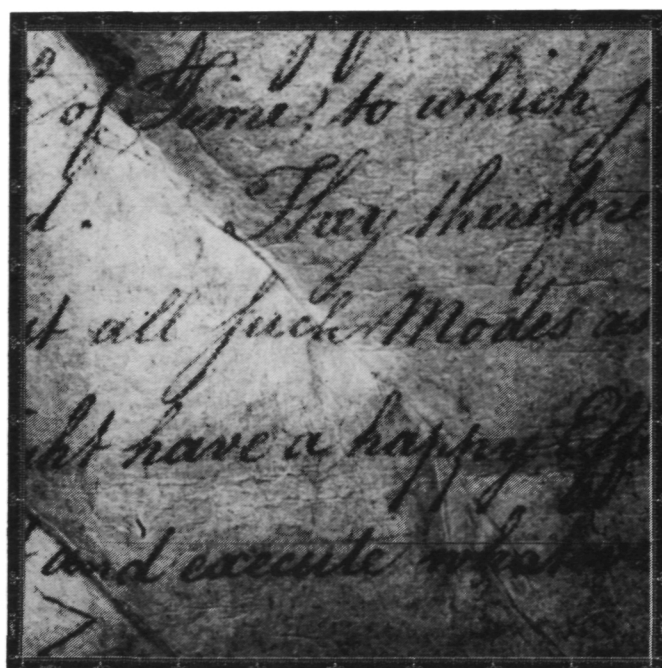 of Time, to which
They therefore
all ſuch Modes as
have a happy
and execute